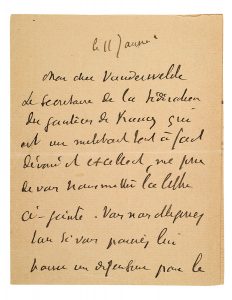 le 11 janvier
Mon cher Vandervelde
Le secrétaire de la fédération
des gantiers de France qui
est un militant tout à fait
dévoué et excellent, me prie
de vous transmettre la lettre
ci-jointe. Vous nous obligerez
tous si vous pouvez lui
trouver un défenseur pour le